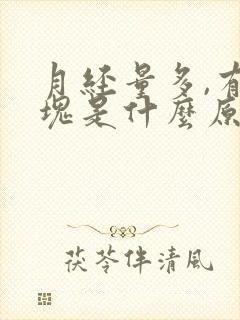 月经量多,有
块是什麼原
茯苓伴清風